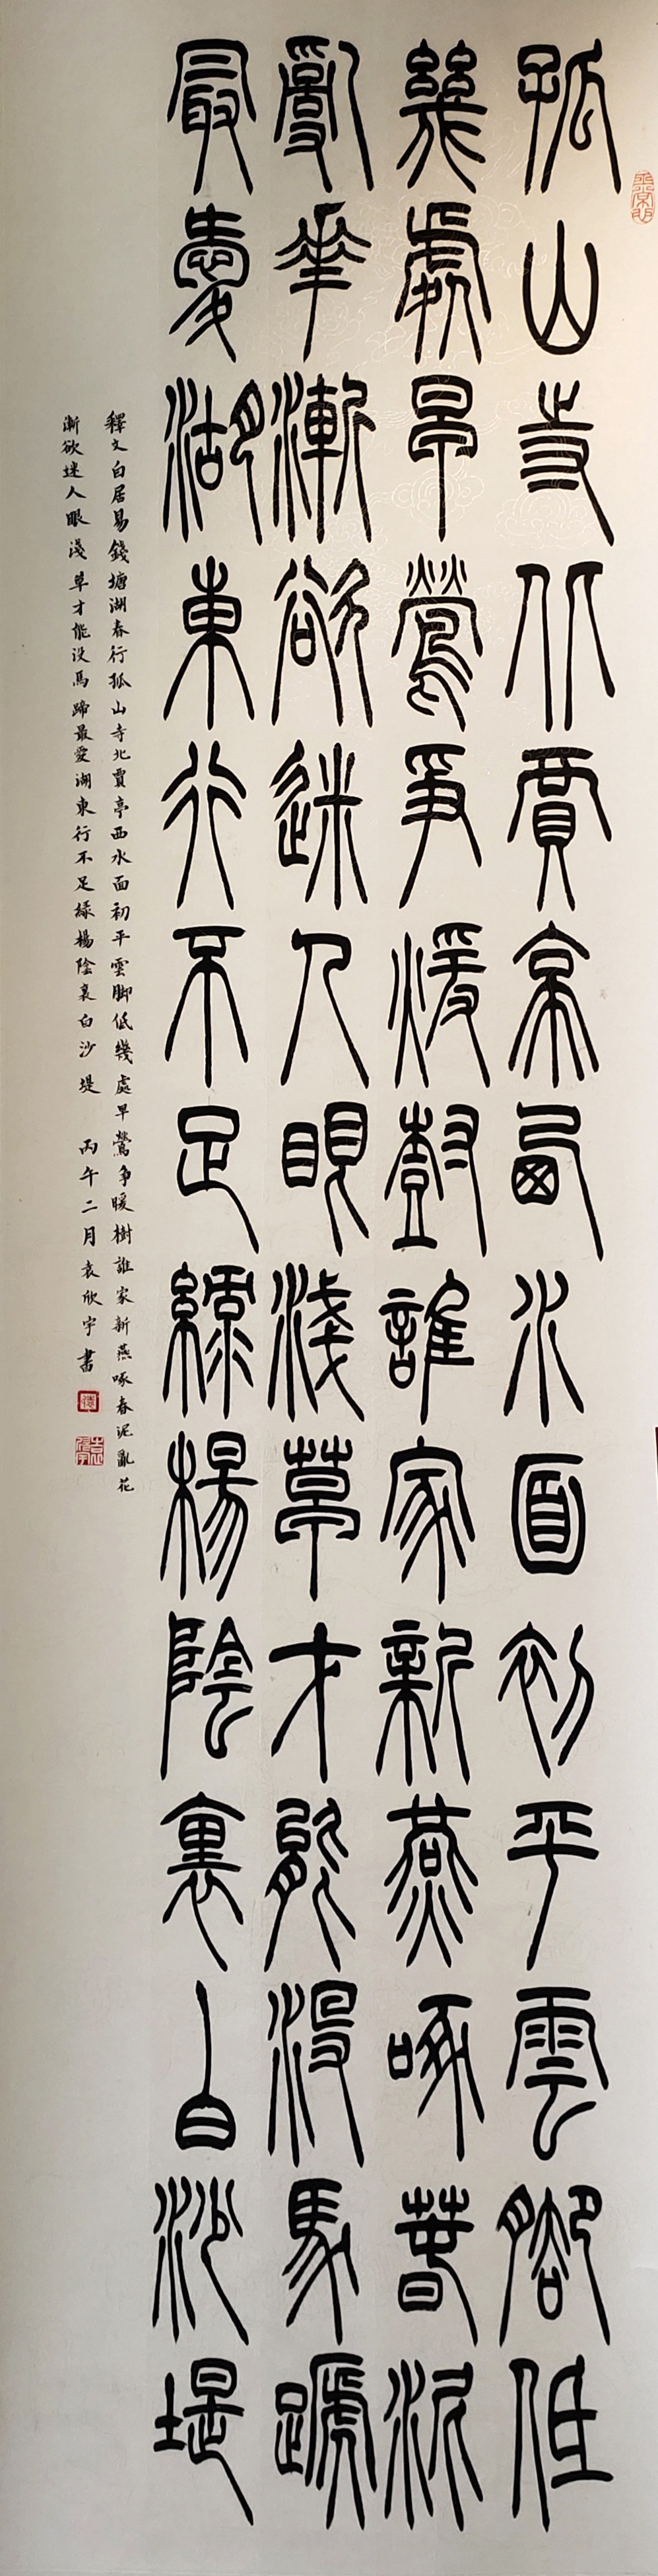 孤山寺北賈亭西水面初平雲腳低
幾處早鶯爭煖樹誰家新燕啄春泥
亂華漸欲迷人眼淺草才能沒馬蹏
最愛湖東行不足綠楊陰裏白沙堤
釋文白居易錢塘湖春行孤山寺北賈亭西水面初平雲脚低幾處早鶯爭暖樹誰家新燕啄春泥亂花
漸欲迷人眼淺草才能沒馬蹄最愛湖東行不足綠楊陰裏白沙堤 丙午二月袁欣宇書